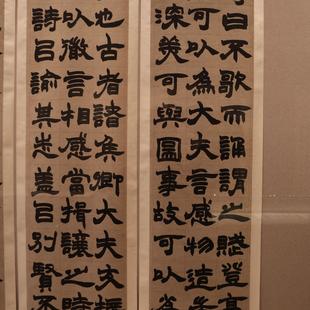 曰不歌而誦謂之賦登高
可以為大夫言感物造耑
深美可與圖事故可以為
也古者諸侯卿大夫交接
以微言相感當揖讓之時
詩㠯諭其志蓋㠯別賢不